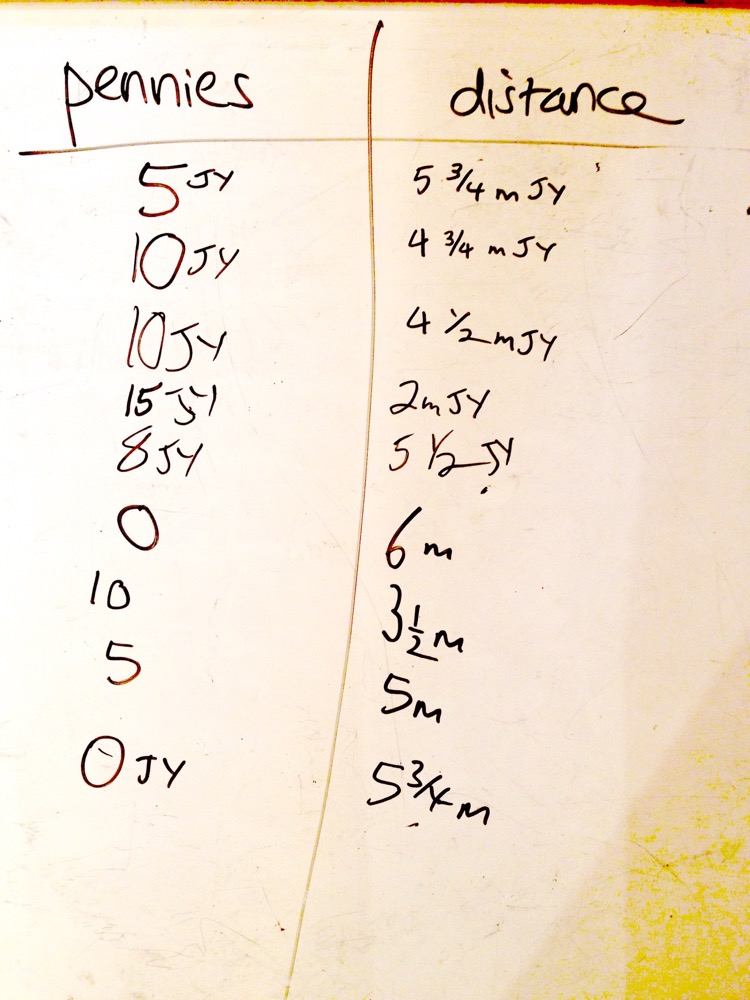 pennies distance
5 JY 5 3/4 m JY
10 JY 4 3/4 m JY
10 JY 4 1/2 m JY
15 JY 2m JY
8 JY 5 1/2 JY
0 6 m
10 3 1/2 m
5 5m
0 JY 5 3/4 m